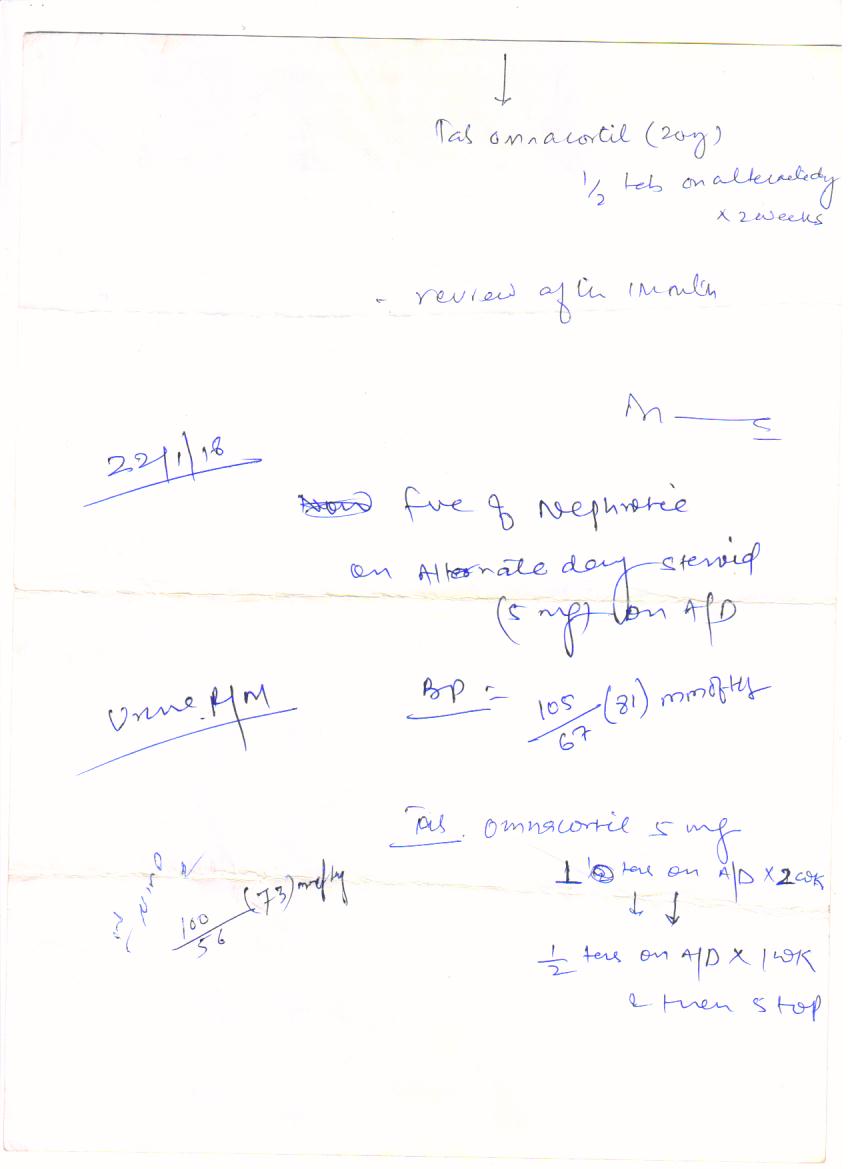 ↓
Tab omnacortil (20mg)
1/2 tab on alternately
x 2 weeks
- review after 1 month
22/1/18
fuc of Nephrotic
on Alternate day steroid
(5 mg) on A/D
Urine R/M
BP = 105/67 (81) mmofHg
Tab. Omnacortil 5 mg
1 tab on A/D x 2 wk
↓ ↓
100/56 (73) mmofHg
1/2 tab on A/D x 1 wk
& then stop